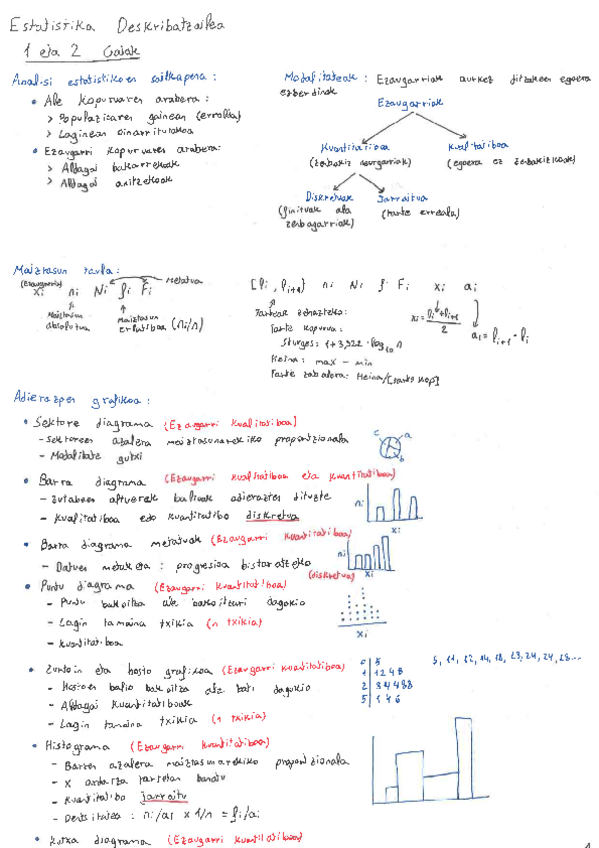 Estatistika Deskribatzailea
1 eta 2 Gaiak
Analisi estatistikoen sailkapena:
• Ale kopuruaren arabera:
> Populazioaren gainean (errolda)
> Laginean oinarritutakoa
• Ezaugarri kopuruaren arabera:
> Aldagai bakarrekoak
> Aldagai anitzekoak
Modalitateak: Ezaugarriak aurkez ditzakeen egoera
ezberdinak
Ezaugarriak
Kuantitatiboa
(zenbakiz neurgarriak)
Kualitatiboa
(egoera ez zenbakizkoak)
Diskretuak
(finituak ala
zenbagarriak)
Jarraitua
(tarte erreala)
Maiztasun taula:
(Ezaugarria)
xi ni Ni fi Fi
Metatua
Maiztasun
absolutua
Maiztasun
erlatiboa (ni/n)
[li, li+1) ni Ni fi Fi xi ai
Tarteak zehazteko:
Tarte kopurua:
Sturges: 1+3,322·log10 n
Heina: max - min
Tarte zabalera: Heina/[tarte kop]
xi = li+li+1/2
ai = li+1 - li
Adierazpen grafikoa:
• Sektore diagrama (Ezaugarri kualitatiboa)
- Sektoreen azalera maiztasunarekiko proportzionala
- Modalitate gutxi
c a
b
• Barra diagrama (Ezaugarri kualitatiboa eta kuantitatiboa)
- Zutabeen altuerak balioak adierazten dituzte
- Kualitatiboa edo kuantitatibo diskretua
ni
xi
• Barra diagrama metatuak (Ezaugarri kuantitatiboa)
- Datuen metaketa: progresioa bistaratzeko
(diskretua)
ni
xi
• Puntu diagrama (Ezaugarri kuantitatiboa)
- Puntu bakoitza ale bakoitzari dagokio
- Lagin tamaina txikia (n txikia)
- Kuantitatiboa
xi
• Zurtoin eta hosto grafikoa (Ezaugarri kuantitatiboa)
- Hostoen balio bakoitza ale bati dagokio
- Aldagai kuantitatiboak
- Lagin tamaina txikia (n txikia)
0 5
1 1 2 4 8
2 3 4 4 8 8
5 1 4 6
5, 11, 12, 14, 18, 23, 24, 24, 28...
• Histograma (Ezaugarri kuantitatiboa)
- Barren azalera maiztasunarekiko proportzionala
- X ardatza tartetan banatu
- Kuantitatibo jarraitu
- Dentsitatea: ni/ai x 1/n = fi/ai
• Kutxa diagrama (Ezaugarri kuantitatiboa)